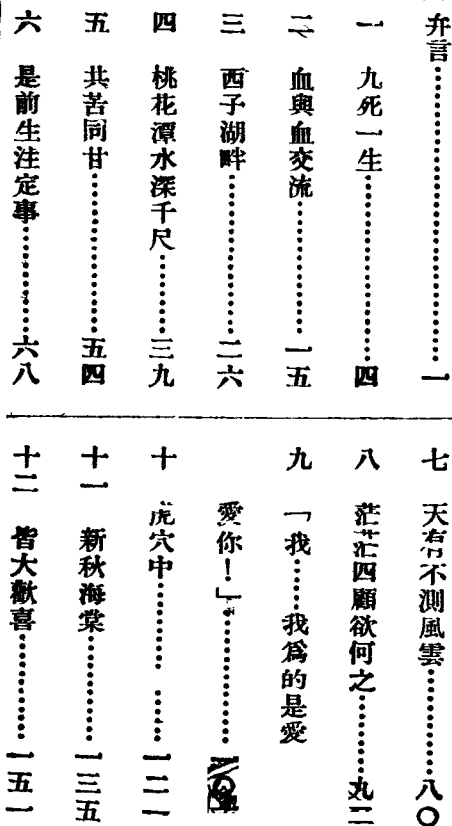 弁言…………………………一
一　九死一生……………………四
二　血與血交流…………………一五
三　西子湖畔……………………二六
四　桃花潭水深千尺……………三九
五　共苦同甘……………………五四
六　是前生注定事………………六八
七　天有不測風雲………………八〇
八　茫茫四顧欲何之……………九二
九　「我……我爲的是愛
愛你！」………………
十　虎穴中………　……一二一
十一　新秋海棠…………………一三五
十二　皆大歡喜…………………一五一